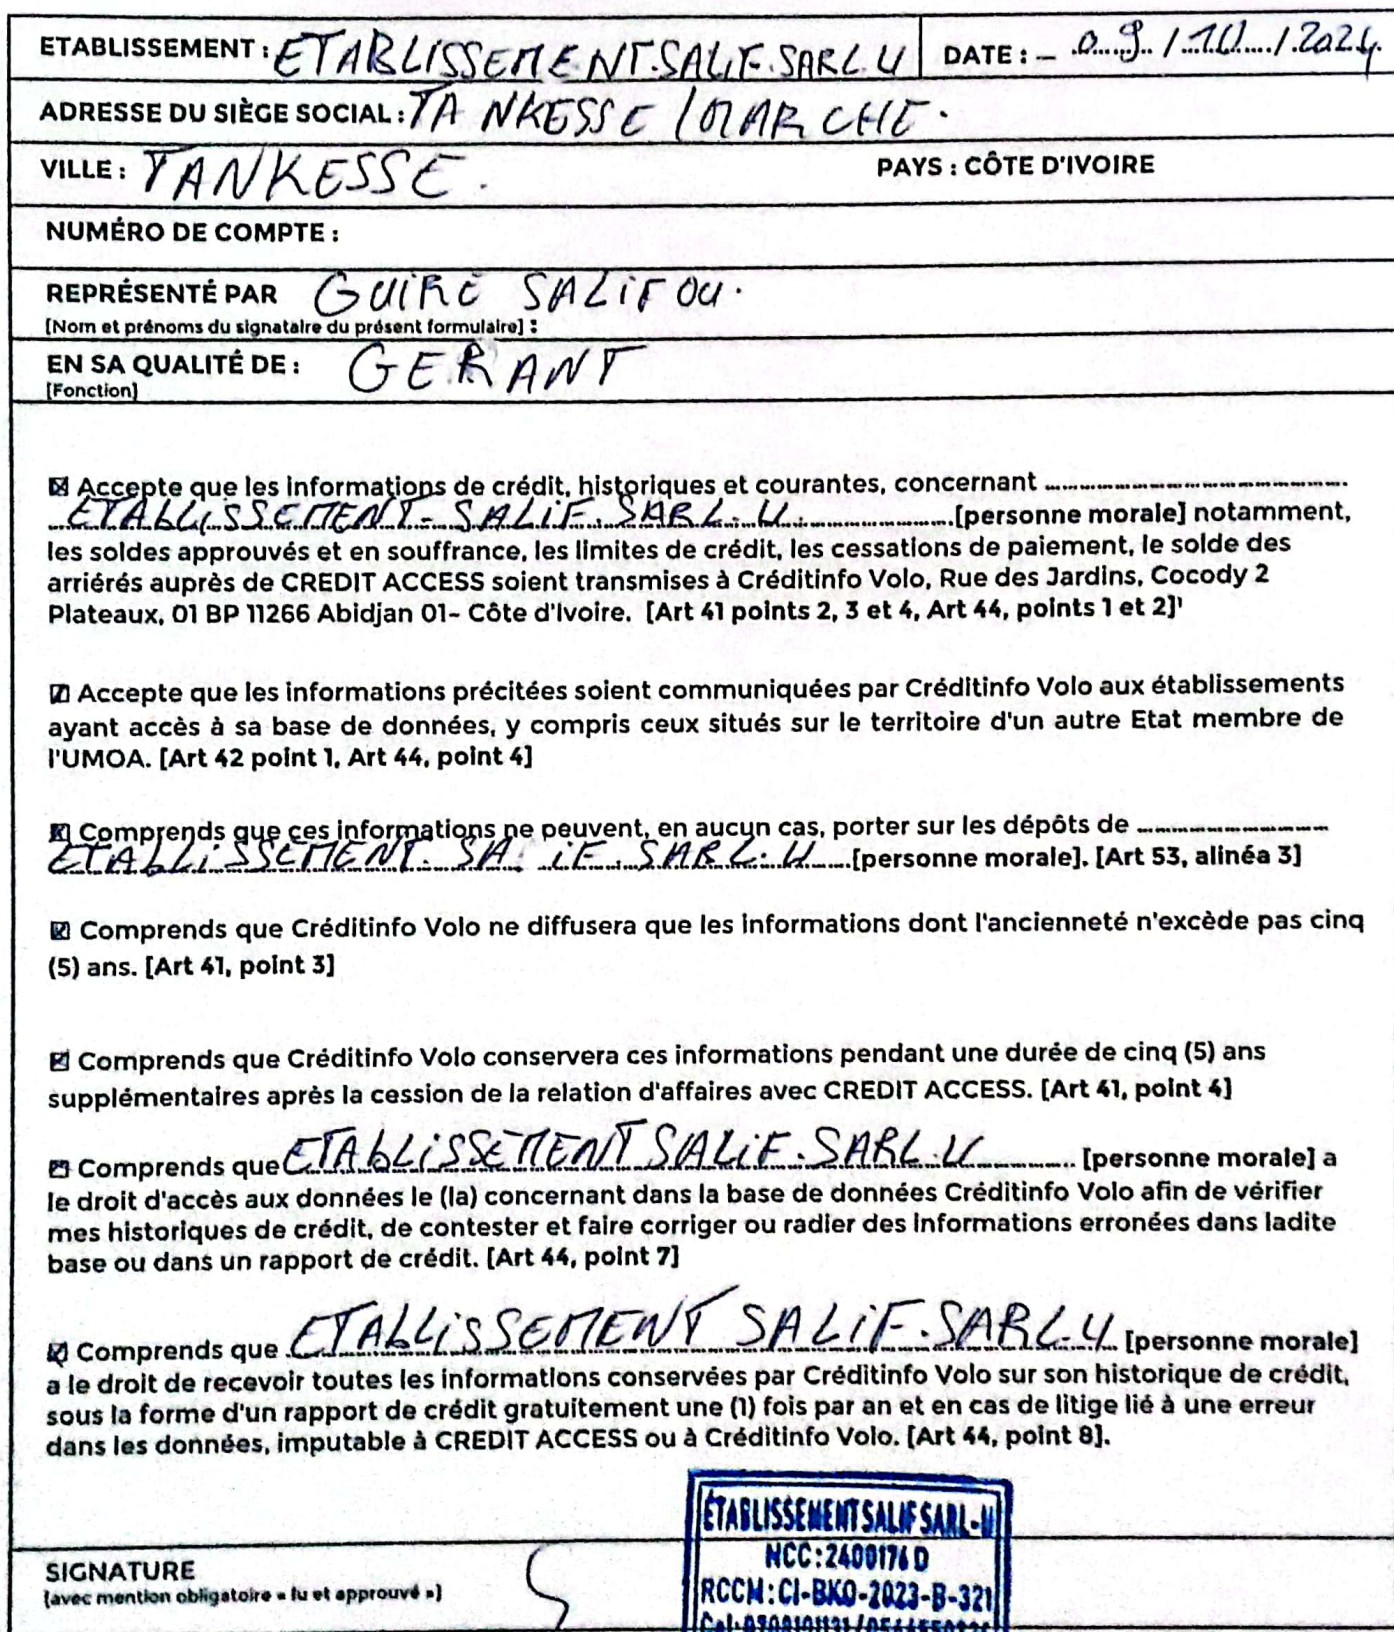 ETABLISSEMENT : ETABLISSEMENT.SALIF.SARL.U DATE : – 09/10/2024
ADRESSE DU SIÈGE SOCIAL : TANKESSE /MARCHE.
VILLE : TANKESSE. PAYS : CÔTE D'IVOIRE
NUMÉRO DE COMPTE :
REPRÉSENTÉ PAR GUIRE SALIFOU.
[Nom et prénoms du signataire du présent formulaire] :
EN SA QUALITÉ DE : GERANT
[Fonction]
☒ Accepte que les informations de crédit, historiques et courantes, concernant
ETABLISSEMENT-SALIF.SARL.U. [personne morale] notamment,
les soldes approuvés et en souffrance, les limites de crédit, les cessations de paiement, le solde des
arriérés auprès de CREDIT ACCESS soient transmises à Créditinfo Volo, Rue des Jardins, Cocody 2
Plateaux, 01 BP 11266 Abidjan 01- Côte d'Ivoire. [Art 41 points 2, 3 et 4, Art 44, points 1 et 2]¹
☒ Accepte que les informations précitées soient communiquées par Créditinfo Volo aux établissements
ayant accès à sa base de données, y compris ceux situés sur le territoire d'un autre Etat membre de
l'UMOA. [Art 42 point 1, Art 44, point 4]
☒ Comprends que ces informations ne peuvent, en aucun cas, porter sur les dépôts de
ETABLISSEMENT. SA iF.SARL.U [personne morale]. [Art 53, alinéa 3]
☒ Comprends que Créditinfo Volo ne diffusera que les informations dont l'ancienneté n'excède pas cinq
(5) ans. [Art 41, point 3]
☒ Comprends que Créditinfo Volo conservera ces informations pendant une durée de cinq (5) ans
supplémentaires après la cession de la relation d'affaires avec CREDIT ACCESS. [Art 41, point 4]
☒ Comprends que ETABLISSEMENT SALIF.SARL.U [personne morale] a
le droit d'accès aux données le (la) concernant dans la base de données Créditinfo Volo afin de vérifier
mes historiques de crédit, de contester et faire corriger ou radier des informations erronées dans ladite
base ou dans un rapport de crédit. [Art 44, point 7]
☒ Comprends que ETABLISSEMENT SALIF.SARL.U [personne morale]
a le droit de recevoir toutes les informations conservées par Créditinfo Volo sur son historique de crédit,
sous la forme d'un rapport de crédit gratuitement une (1) fois par an et en cas de litige lié à une erreur
dans les données, imputable à CREDIT ACCESS ou à Créditinfo Volo. [Art 44, point 8].
ÉTABLISSEMENT SALIF SARL-U
NCC:2400176 D
RCCM:CI-BKO-2023-B-321
SIGNATURE
[avec mention obligatoire « lu et approuvé »]